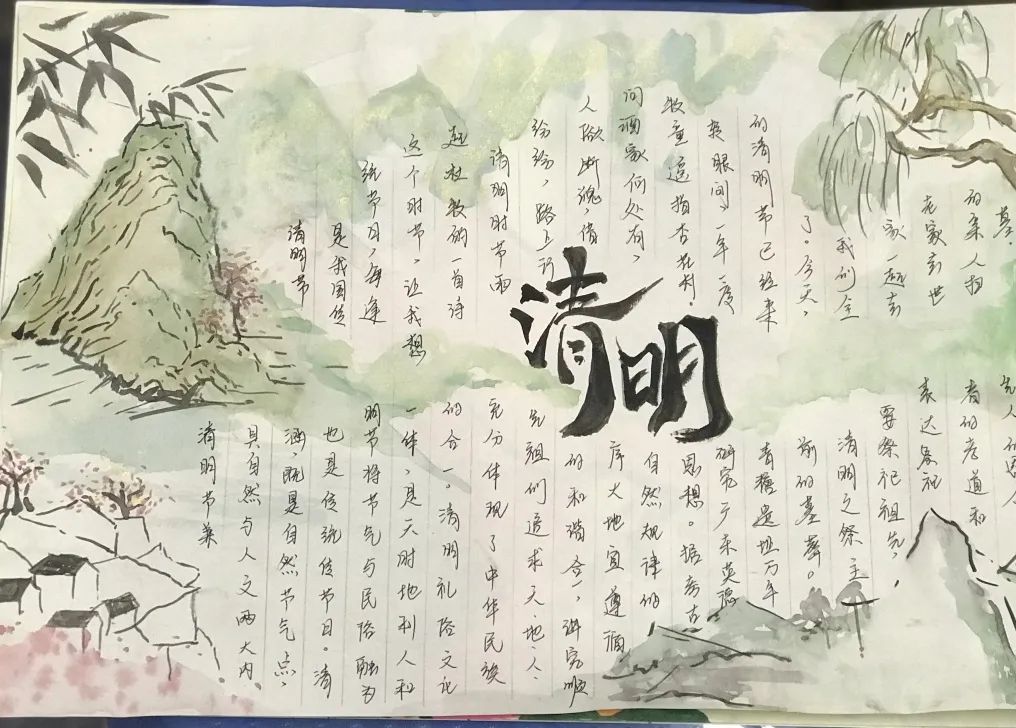 清明
清明节
是我国传
统节日,每逢
这个时节,让我想
起杜牧的一首诗
清明时节雨
纷纷,路上行
人欲断魂,借
问酒家何处有,
牧童遥指杏花村。
转眼间,一年一度
的清明节已经来
了。今天,
我们全
家一起去
老家去世
的亲人扫
墓。
清明节兼
具自然与人文两大内
涵,既是自然节气点,
也是传统传节日。清
明节将节气与民俗融为
一体,是天时地利人和
的合一。清明礼俗文化
充分体现了中华民族
先祖们追求天·地·人·
的和谐合一,讲究顺
序大地宜遵循
自然规律的
思想。据考古
研究广东英德
青塘遗址万年
前的墓葬。
清明之祭主
要祭祀祖先,
表达祭祀
者的孝道和
先人的思